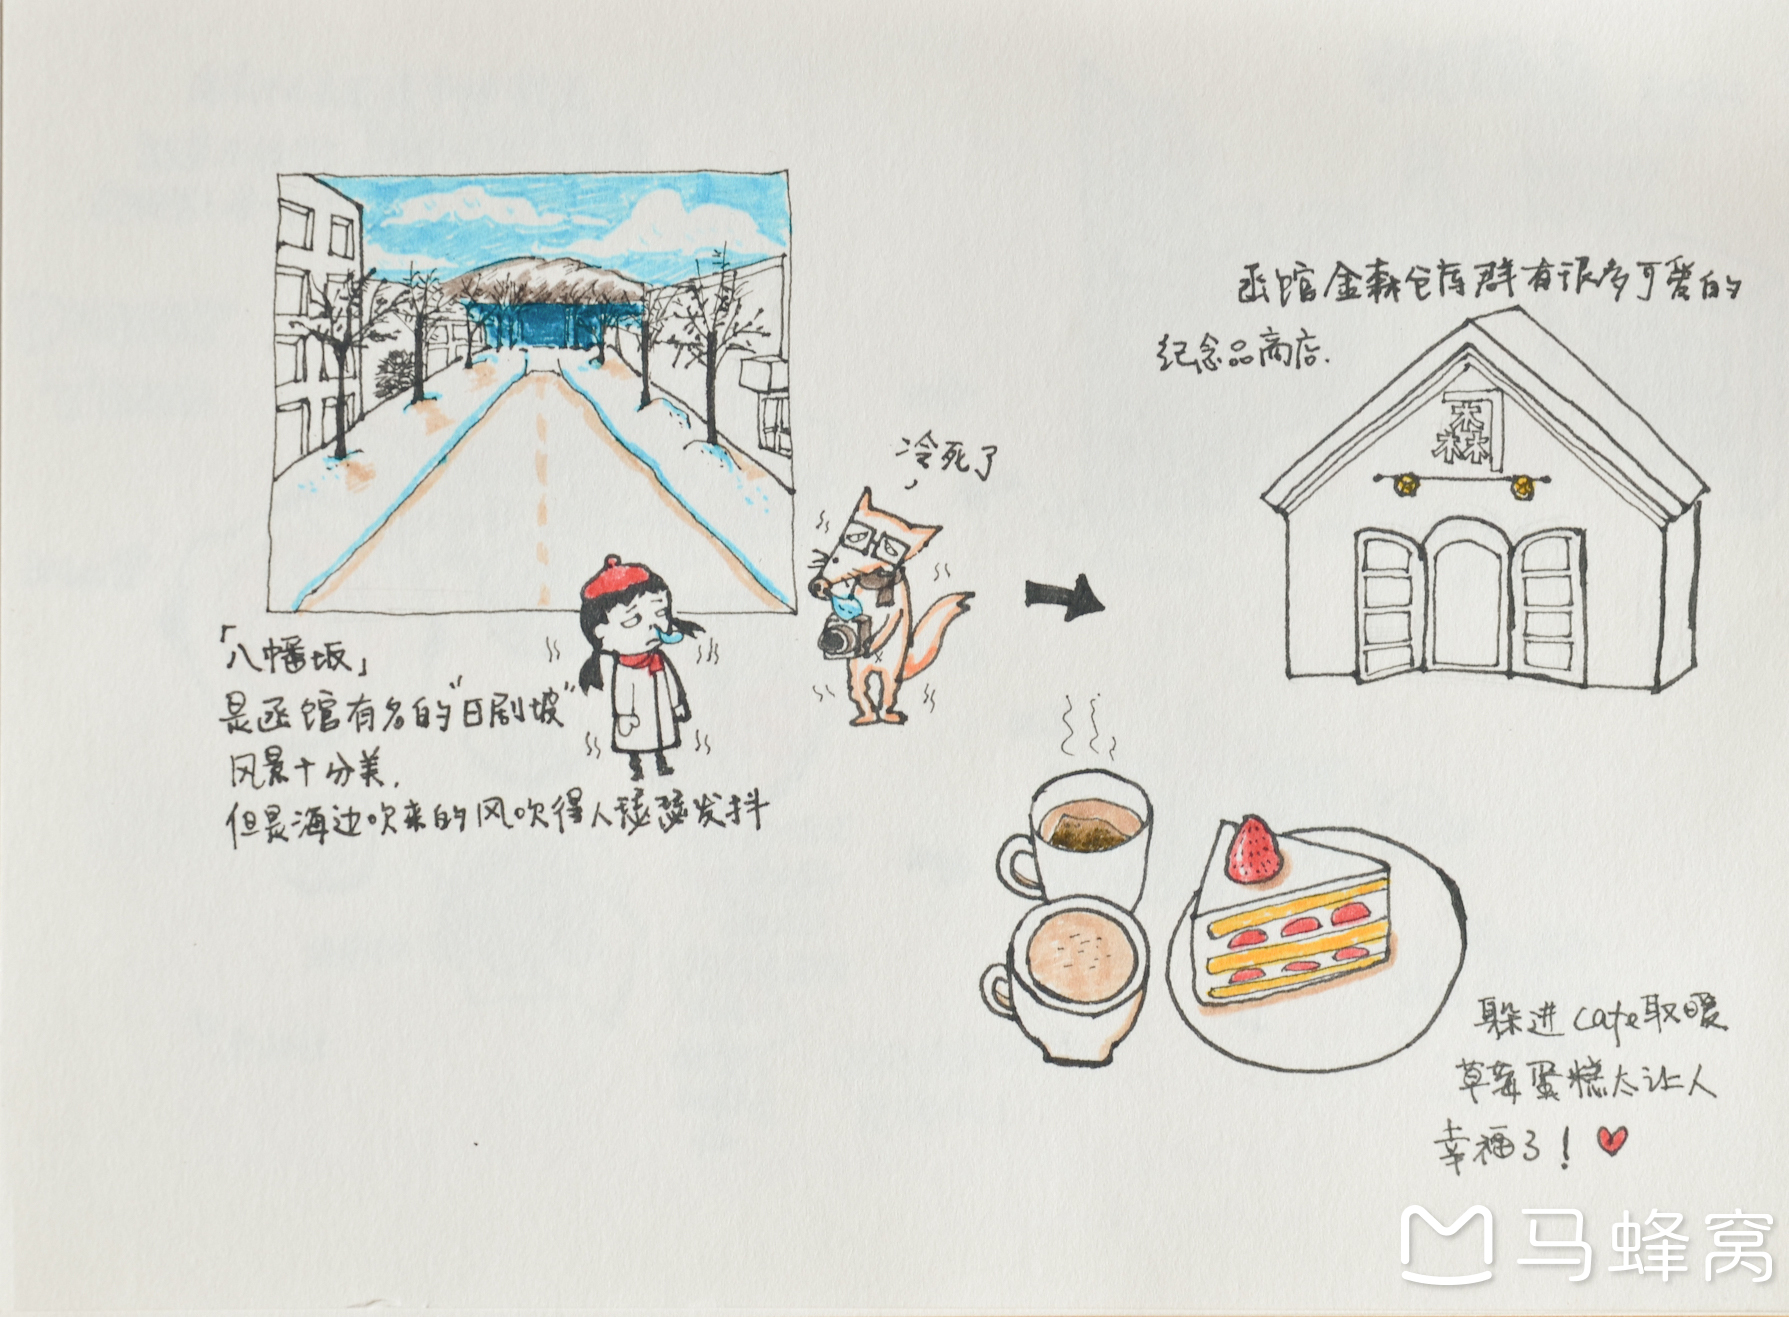 「八幡坂」
是函馆有名的"日剧坡"
风景十分美.
但是海边吹来的风吹得人瑟瑟发抖
冷死了
函馆金森仓库群有很多可爱的
纪念品商店.
森
躲进cafe取暖
草莓蛋糕太让人
幸福了!
马蜂窝